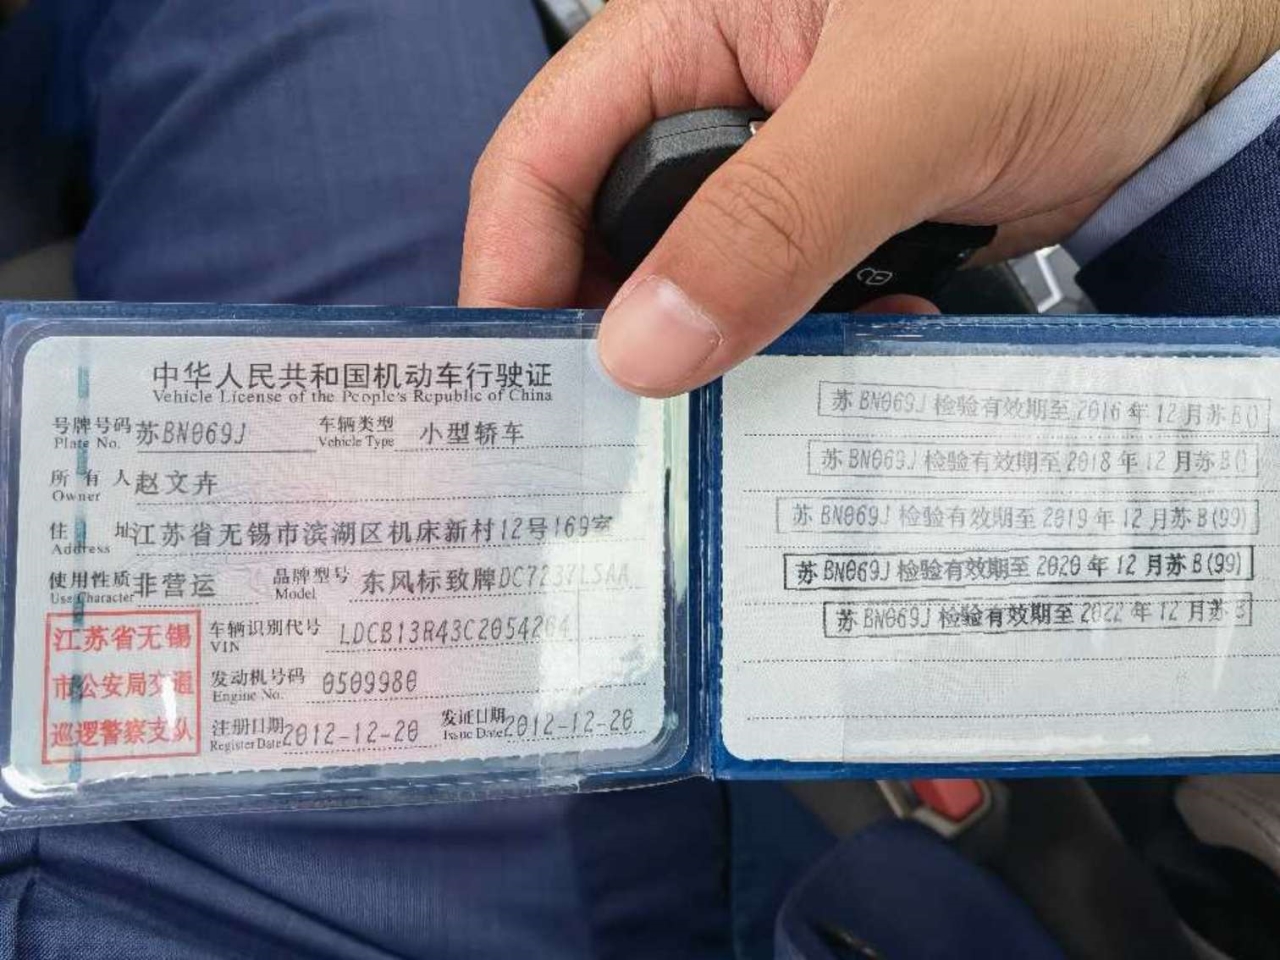 中华人民共和国机动车行驶证
Vehicle License of the People's Republic of China
号牌号码 苏BN069J 车辆类型 小型轿车
Plate No. Vehicle Type
所有人 赵文卉
Owner
住址 江苏省无锡市滨湖区机床新村12号169室
Address
使用性质 非营运 品牌型号 东风标致牌DC7237LSAA
Use Character Model
车辆识别代号 LDCB13R43C2054264
VIN
发动机号码 0509980
Engine No.
注册日期 2012-12-20 发证日期 2012-12-20
Register Date Issue Date
江苏省无锡
市公安局交通
巡逻警察支队
苏BN069J 检验有效期至 2016 年 12 月苏B()
苏BN069J 检验有效期至 2018 年 12 月苏B()
苏BN069J 检验有效期至 2019 年 12 月苏B(99)
苏BN069J 检验有效期至 2020 年 12 月苏B(99)
苏BN069J 检验有效期至 2022 年 12 月苏B